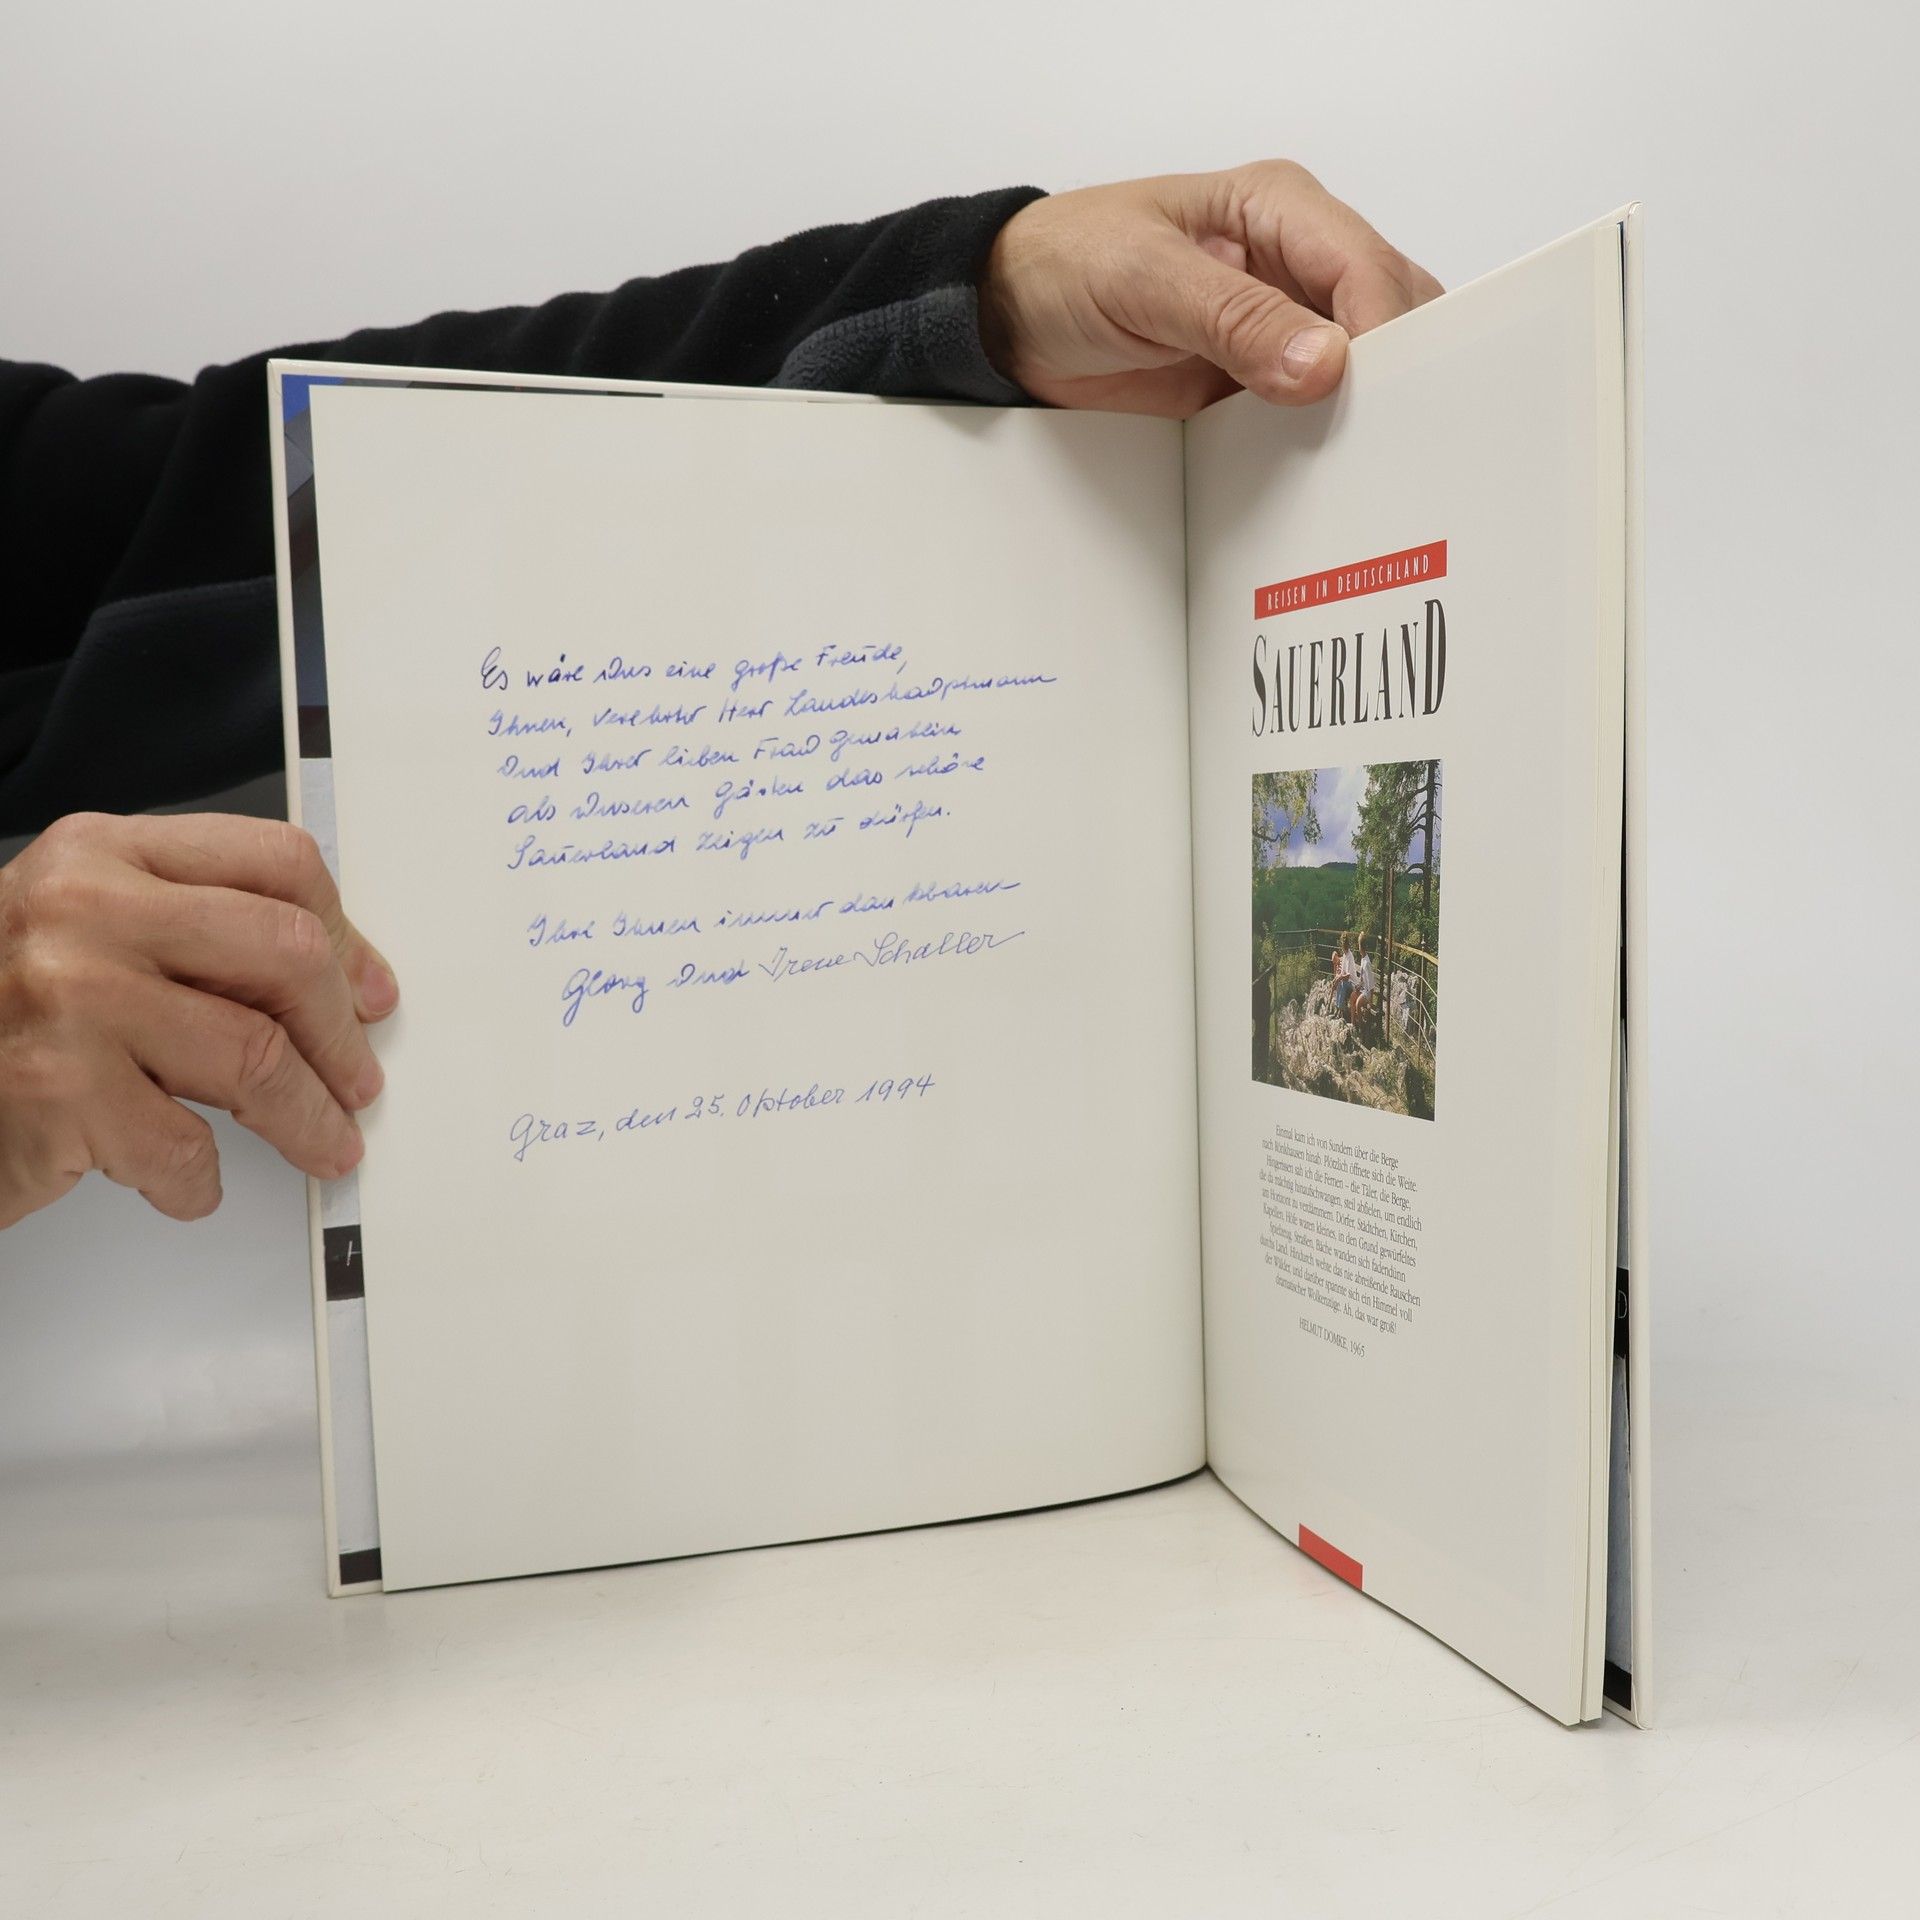 Es wäre uns eine große Freude,
Ihnen, verehrter Herr Landeshauptmann
und Ihrer lieben Frau Gemahlin
als unseren Gästen das schöne
Sauerland zeigen zu dürfen.
Ihre Ihnen immer dankbaren
Georg und Irene Schaller
Graz, den 25. Oktober 1994
REISEN IN DEUTSCHLAND
SAUERLAND
Einmal kam ich von Sundern über die Berge
nach Rönkhausen hinab. Plötzlich öffnete sich die Weite.
Hingerissen sah ich die Fernen – die Täler, die Berge,
die da mächtig hinaufschwangen, steil abfielen, um endlich
am Horizont zu verdämmern. Dörfer, Städtchen, Kirchen,
Kapellen, Höfe waren kleines, in den Grund gewürfeltes
Spielzeug. Straßen, Bäche wanden sich fadendünn
durchs Land. Hindurch wehte das nie abreißende Rauschen
der Wälder, und darüber spannte sich ein Himmel voll
dramatischer Wolkenzüge. Ah, das war groß!
HELMUT DOMKE, 1965